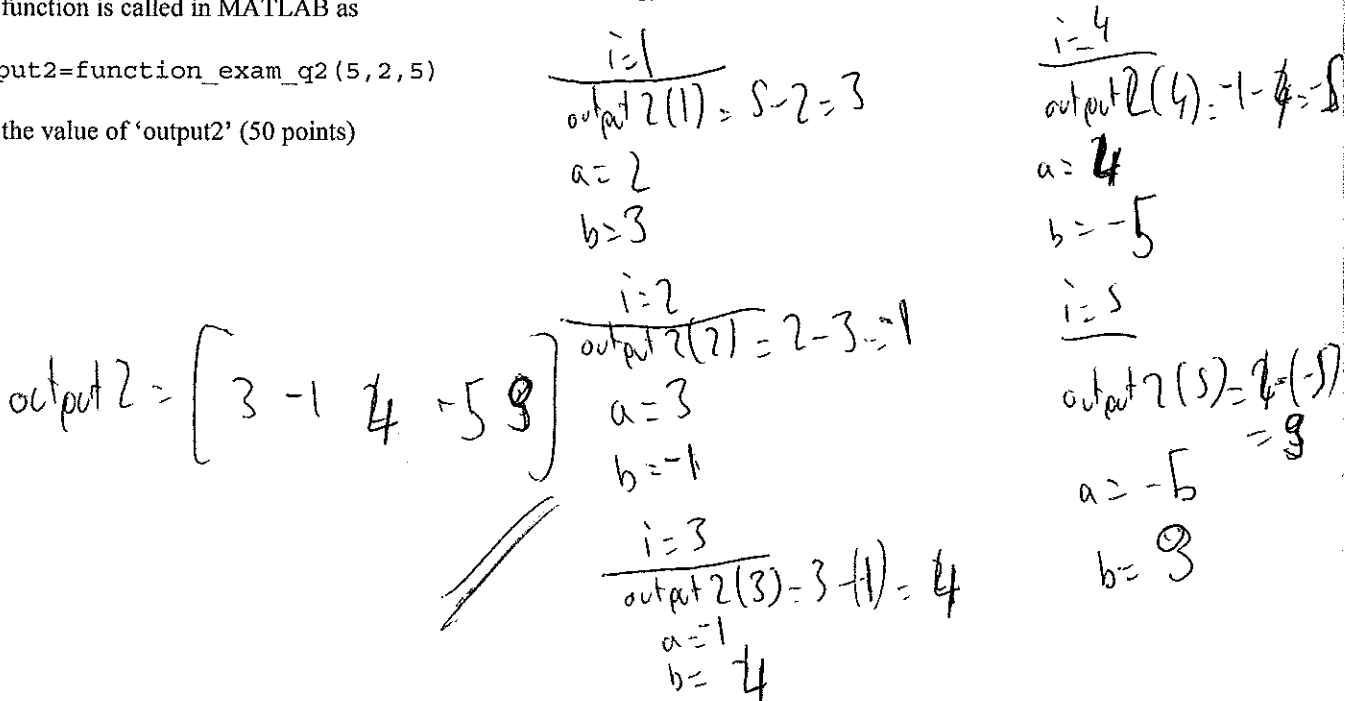 function is called in MATLAB as
put2=function_exam_q2(5,2,5)
the value of 'output2' (50 points)
output2 = [3 -1 4 -5 9]
i=1
output2(1) = 5-2=3
a=2
b=3
i=2
output2(2) = 2-3=-1
a=3
b=-1
i=3
output2(3)=3-(-1)=4
a=-1
b=4
i=4
output2(4)=-1-4=-5
a=4
b=-5
i=5
output2(5)=4-(-5)
=9
a=-5
b=9